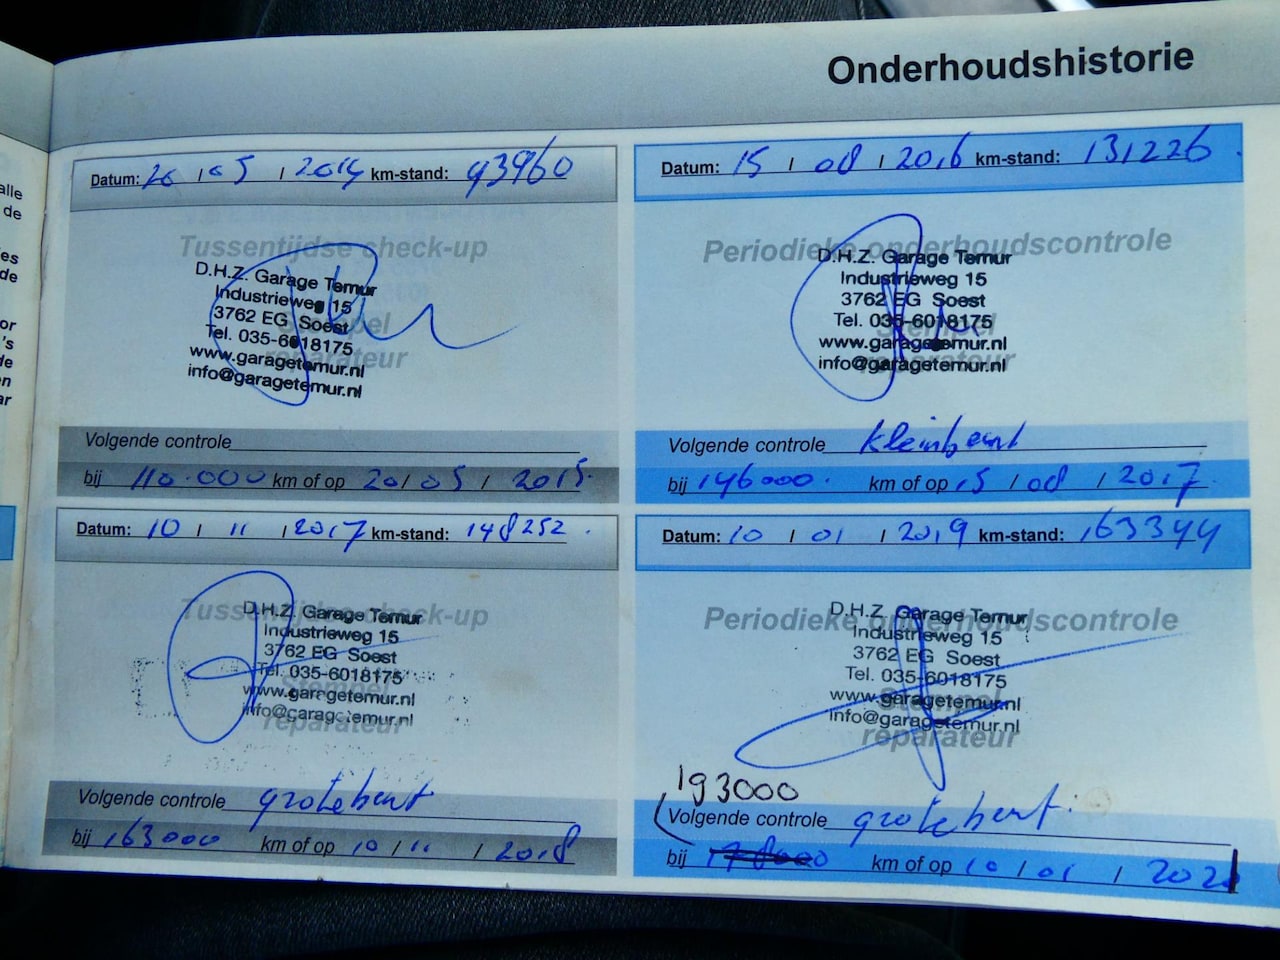 Onderhoudshistorie
alle
de
es
de
or
's
de
en
ar
Datum: 20 / 05 / 2014 km-stand: 93960
Tussentijdse check-up
D.H.Z. Garage Temur
Industrieweg 15
3762 EG Soest
Tel. 035-6018175
www.garagetemur.nl
info@garagetemur.nl
Stempel
reparateur
Volgende controle
bij 110.000 km of op 20 / 05 / 2015.
Datum: 15 / 08 / 2016 km-stand: 131226.
Periodieke onderhoudscontrole
D.H.Z. Garage Temur
Industrieweg 15
3762 EG Soest
Tel. 035-6018175
www.garagetemur.nl
info@garagetemur.nl
Stempel
reparateur
Volgende controle kleinbeurt
bij 146000. km of op 15 / 08 / 2017.
Datum: 10 / 11 / 2017 km-stand: 148252.
Tussentijdse check-up
D.H.Z. Garage Temur
Industrieweg 15
3762 EG Soest
Tel. 035-6018175
www.garagetemur.nl
info@garagetemur.nl
Stempel
reparateur
Volgende controle grotebeurt
bij 163000 km of op 10 / 11 / 2018
Datum: 10 / 01 / 2019 km-stand: 163344
Periodieke onderhoudscontrole
D.H.Z. Garage Temur
Industrieweg 15
3762 EG Soest
Tel. 035-6018175
www.garagetemur.nl
info@garagetemur.nl
Stempel
reparateur
193000
Volgende controle grotebeurt.
bij 178000 km of op 10 / 01 / 2021